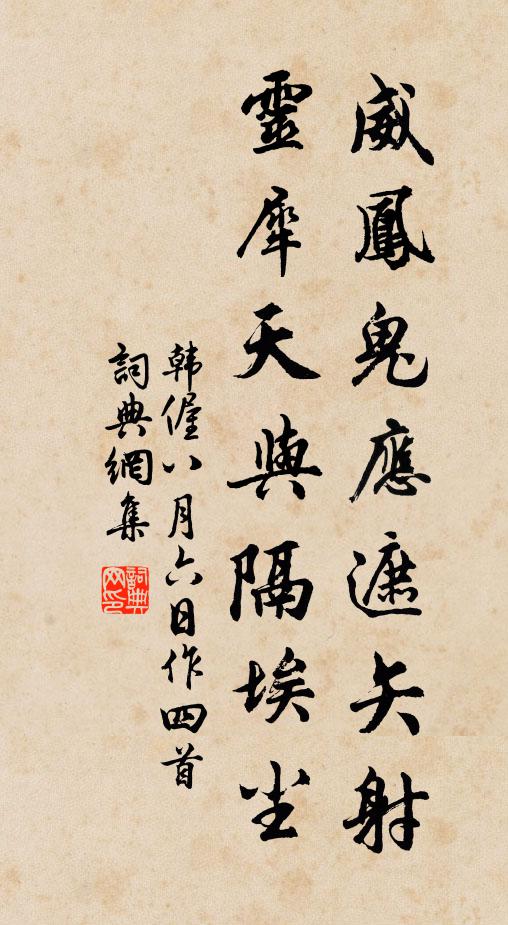 威鳳鬼應遮矢射
靈犀天與隔埃尘
韩偓八月六日作四首
詞典網集
詞典网印